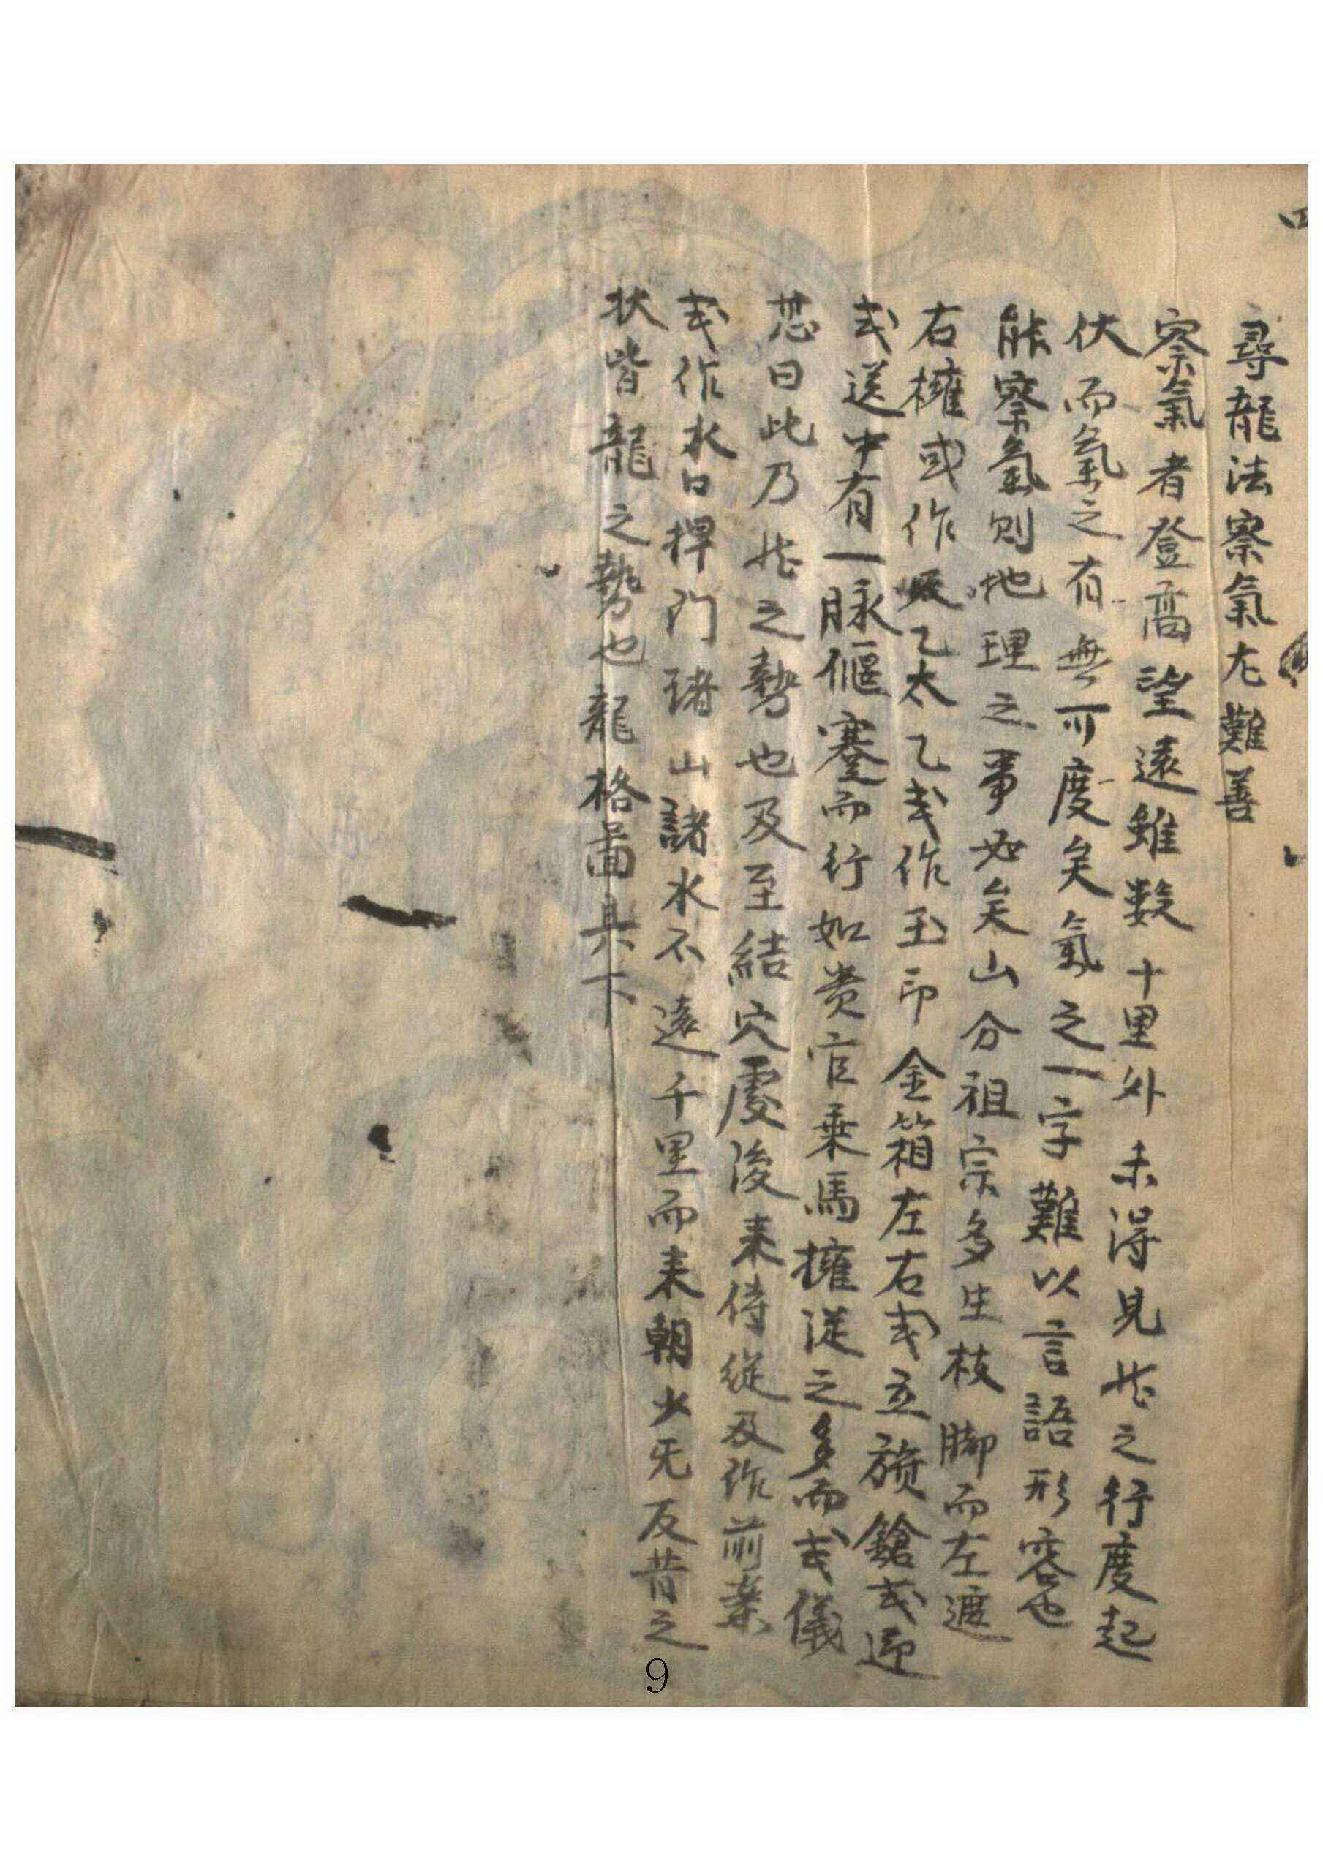 尋龍法察氣尤難善
察氣者登高望遠雖数十里外未得見龙之行度起
伏而氣之有無可度矣氣之一字難以言語形容也
能察氣則地理之事必矣山分祖宗多生枝脚而左遮
右擁或作天乙太乙或作玉印金箱左右或立旗鎗或迎
或送中有一脉偃蹇而行如贵官乗馬擁從之多而或儀
曰此乃龙之勢也及至結穴處後来侍從及作前案
或作水口捍门诸山諸水不遠千里而来朝少无反背之
状皆龍之勢也龍格啚具下
9